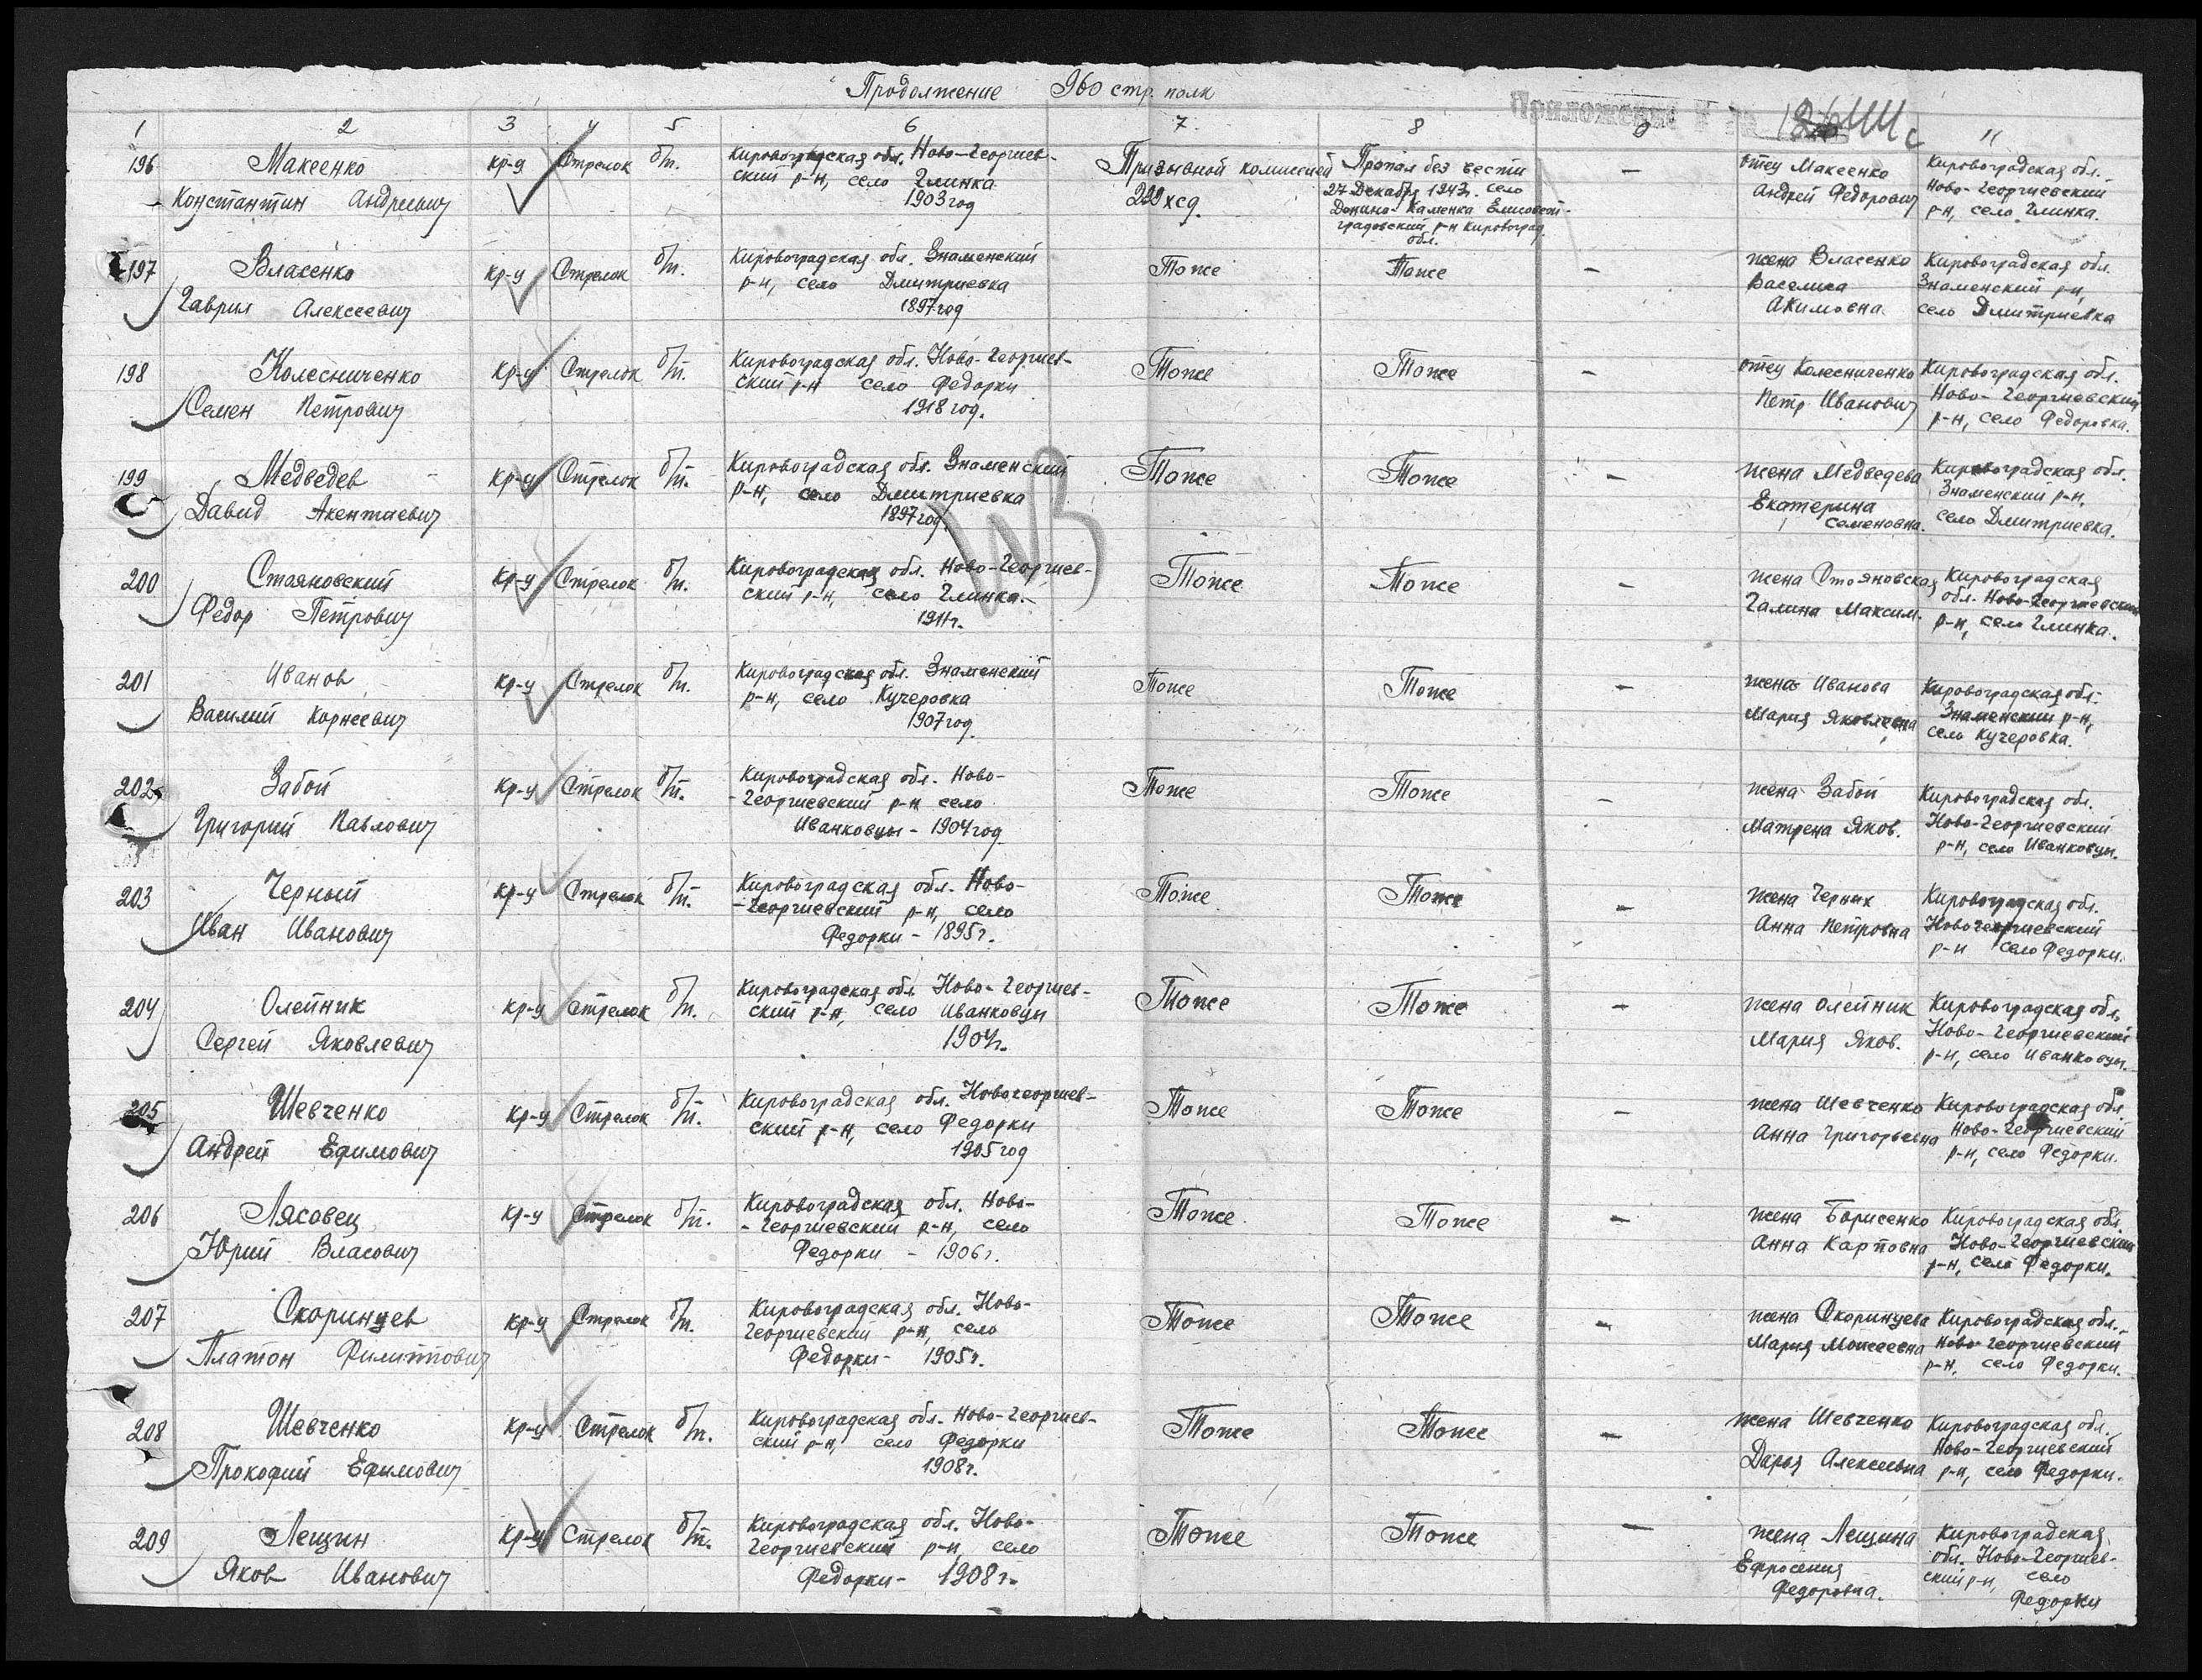 Продолжение 960 стр. полк
Приложение к №
1 2 3 4 5 6 7. 8 9 11
196 Макеенко кр-ц Стрелок б/п. Кировоградская обл. Ново-Георгиев-
ский р-н, село Глинка
1903 год
Константин Андреевич
Призывной комиссией
229 ксд.
Пропал без вести
27 Декабря 1943г. село
Донино-Каменка Елисовет-
градовский р-н Кировоград.
обл.
—
отец Макеенко
Андрей Федорович
Кировоградская обл.
Ново-Георгиевский
р-н, село Глинка.
197 Власенко кр-ц Стрелок б/п. Кировоградская обл. Знаменский
р-н, село Дмитриевка
1897 год
Гаврил Алексеевич
Тоже Тоже —
жена Власенко
Василиса
Акимовна.
Кировоградская обл.
Знаменский р-н,
село Дмитриевка
198 Колесниченко кр-ц Стрелок б/п. Кировоградская обл. Ново-Георгиев-
ский р-н село Федорки
1918 год.
Семен Петрович
Тоже Тоже —
отец Колесниченко
Петр Иванович
Кировоградская обл.
Ново-Георгиевский
р-н, село Федоровка.
199 Медведев кр-ц Стрелок б/п. Кировоградская обл. Знаменский
р-н, село Дмитриевка
1897 год.
Давид Акентиевич
Тоже Тоже —
жена Медведева
Екатерина
Семеновна.
Кировоградская обл.
Знаменский р-н,
село Дмитриевка.
200 Стаяновский кр-ц Стрелок б/п. Кировоградская обл. Ново-Георгиев-
ский р-н, село Глинка.
1911г.
Федор Петрович
Тоже Тоже —
жена Стояновская
Галина Максим.
Кировоградская
обл. Ново-Георгиевский
р-н, село Глинка.
201 Иванов кр-ц Стрелок б/п. Кировоградская обл. Знаменский
р-н, село Кучеровка
1907 год.
Василий Корнеевич
Тоже Тоже —
жена Иванова
Мария Яковлевна
Кировоградская обл.
Знаменский р-н,
село Кучеровка.
202 Забой кр-ц Стрелок б/п. Кировоградская обл. Ново-
-Георгиевский р-н село
Иванковцы - 1904 год.
Григорий Павлович
Тоже Тоже —
жена Забой
Матрена Яков.
Кировоградская обл.
Ново-Георгиевский
р-н, село Иванковцы.
203 Черный кр-ц Стрелок б/п. Кировоградская обл. Ново-
-Георгиевский р-н, село
Федорки - 1895г.
Иван Иванович
Тоже Тоже —
жена Черник
Анна Петровна
Кировоградская обл.
Новогеоргиевский
р-н село Федорки.
204 Олейник кр-ц Стрелок б/п. Кировоградская обл. Ново-Георгиев-
ский р-н, село Иванковцы
1904г.
Сергей Яковлевич
Тоже Тоже —
жена Олейник
Мария Яков.
Кировоградская обл.
Ново-Георгиевский
р-н, село Иванковцы.
205 Шевченко кр-ц Стрелок б/п. Кировоградская обл. Новогеоргиев-
ский р-н, село Федорки
1905 год
Андрей Ефимович
Тоже Тоже —
жена Шевченко
Анна Григорьевна
Кировоградская обл.
Ново-Георгиевский
р-н, село Федорки.
206 Лясовец кр-ц Стрелок б/п. Кировоградская обл. Ново-
-Георгиевский р-н, село
Федорки - 1906г.
Юрий Власович
Тоже Тоже —
жена Борисенко
Анна Карповна
Кировоградская обл.
Ново-Георгиевский
р-н, село Федорки.
207 Скоринцев кр-ц Стрелок б/п. Кировоградская обл. Ново-
Георгиевский р-н, село
Федорки - 1905г.
Платон Филиппович
Тоже Тоже —
жена Скоринцева
Мария Моисеевна
Кировоградская обл.
Ново-Георгиевский
р-н, село Федорки.
208 Шевченко кр-ц Стрелок б/п. Кировоградская обл. Ново-Георгиев-
ский р-н, село Федорки
1908г.
Прокофий Ефимович
Тоже Тоже —
жена Шевченко
Дарья Алексеевна
Кировоградская обл.
Ново-Георгиевский
р-н, село Федорки.
209 Лещин кр-ц Стрелок б/п. Кировоградская обл. Ново-
Георгиевский р-н, село
Федорки - 1908г.
Яков Иванович
Тоже Тоже —
жена Лещина
Ефросения
Федоровна.
Кировоградская
обл. Ново-Георгиев-
ский р-н, село
Федорки